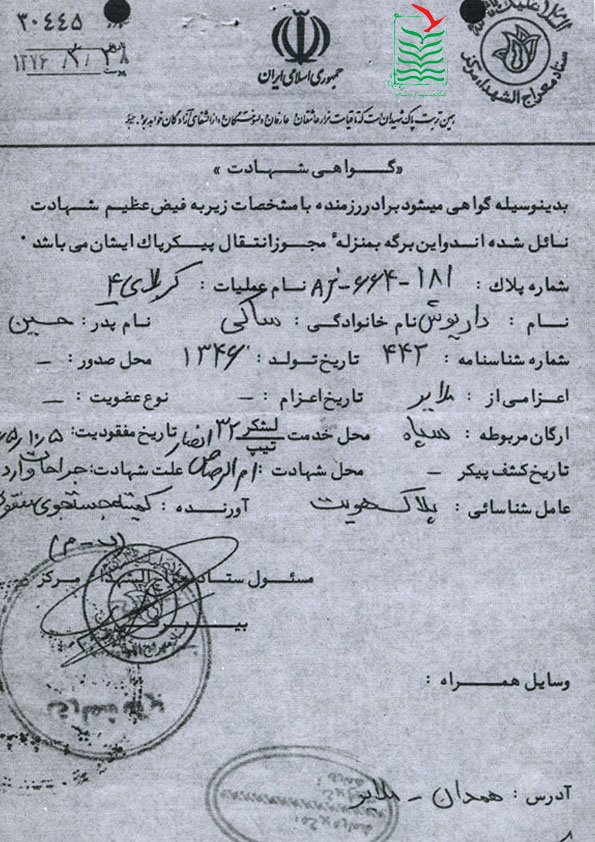 ۳۰۴۴۵
تاریخ ۱۳۷۶/۲/۳۸
جمهوری اسلامی ایران
ستاد معراج الشهداء مرکز
همین تربت پاک شهیدان است که تا قیامت مزار عاشقان و عارفان و دلسوختگان و دارالشفای آزادگان خواهد بود.
«گواهی شهادت»
بدینوسیله گواهی میشود برادر رزمنده با مشخصات زیر به فیض عظیم شهادت
نائل شده اند و این برگه بمنزلهٔ مجوز انتقال پیکر پاک ایشان می باشد.
شماره پلاک : ۱۸۱-۶۶۴-AJ نام عملیات : کربلای ۴
نام : داریوش نام خانوادگی : ساکی نام پدر : حسین
شماره شناسنامه : ۴۴۲ تاریخ تولد : ۱۳۴۶ محل صدور : –
اعزامی از : ملایر تاریخ اعزام : – نوع عضویت : –
ارگان مربوطه : سپاه محل خدمت لشکر تیپ ۳۲ انصار تاریخ مفقودیت : ۶۵/۱۰/۵
تاریخ کشف پیکر – محل شهادت : ام الرصاص علت شهادت : جراحات وارد
عامل شناسائی : پلاک هویت آورنده : کمیته جستجوی مفقود
(ب-م)
مسئول ستاد معراج الشهداء مرکز
وسایل همراه :
آدرس : همدان – ملایر